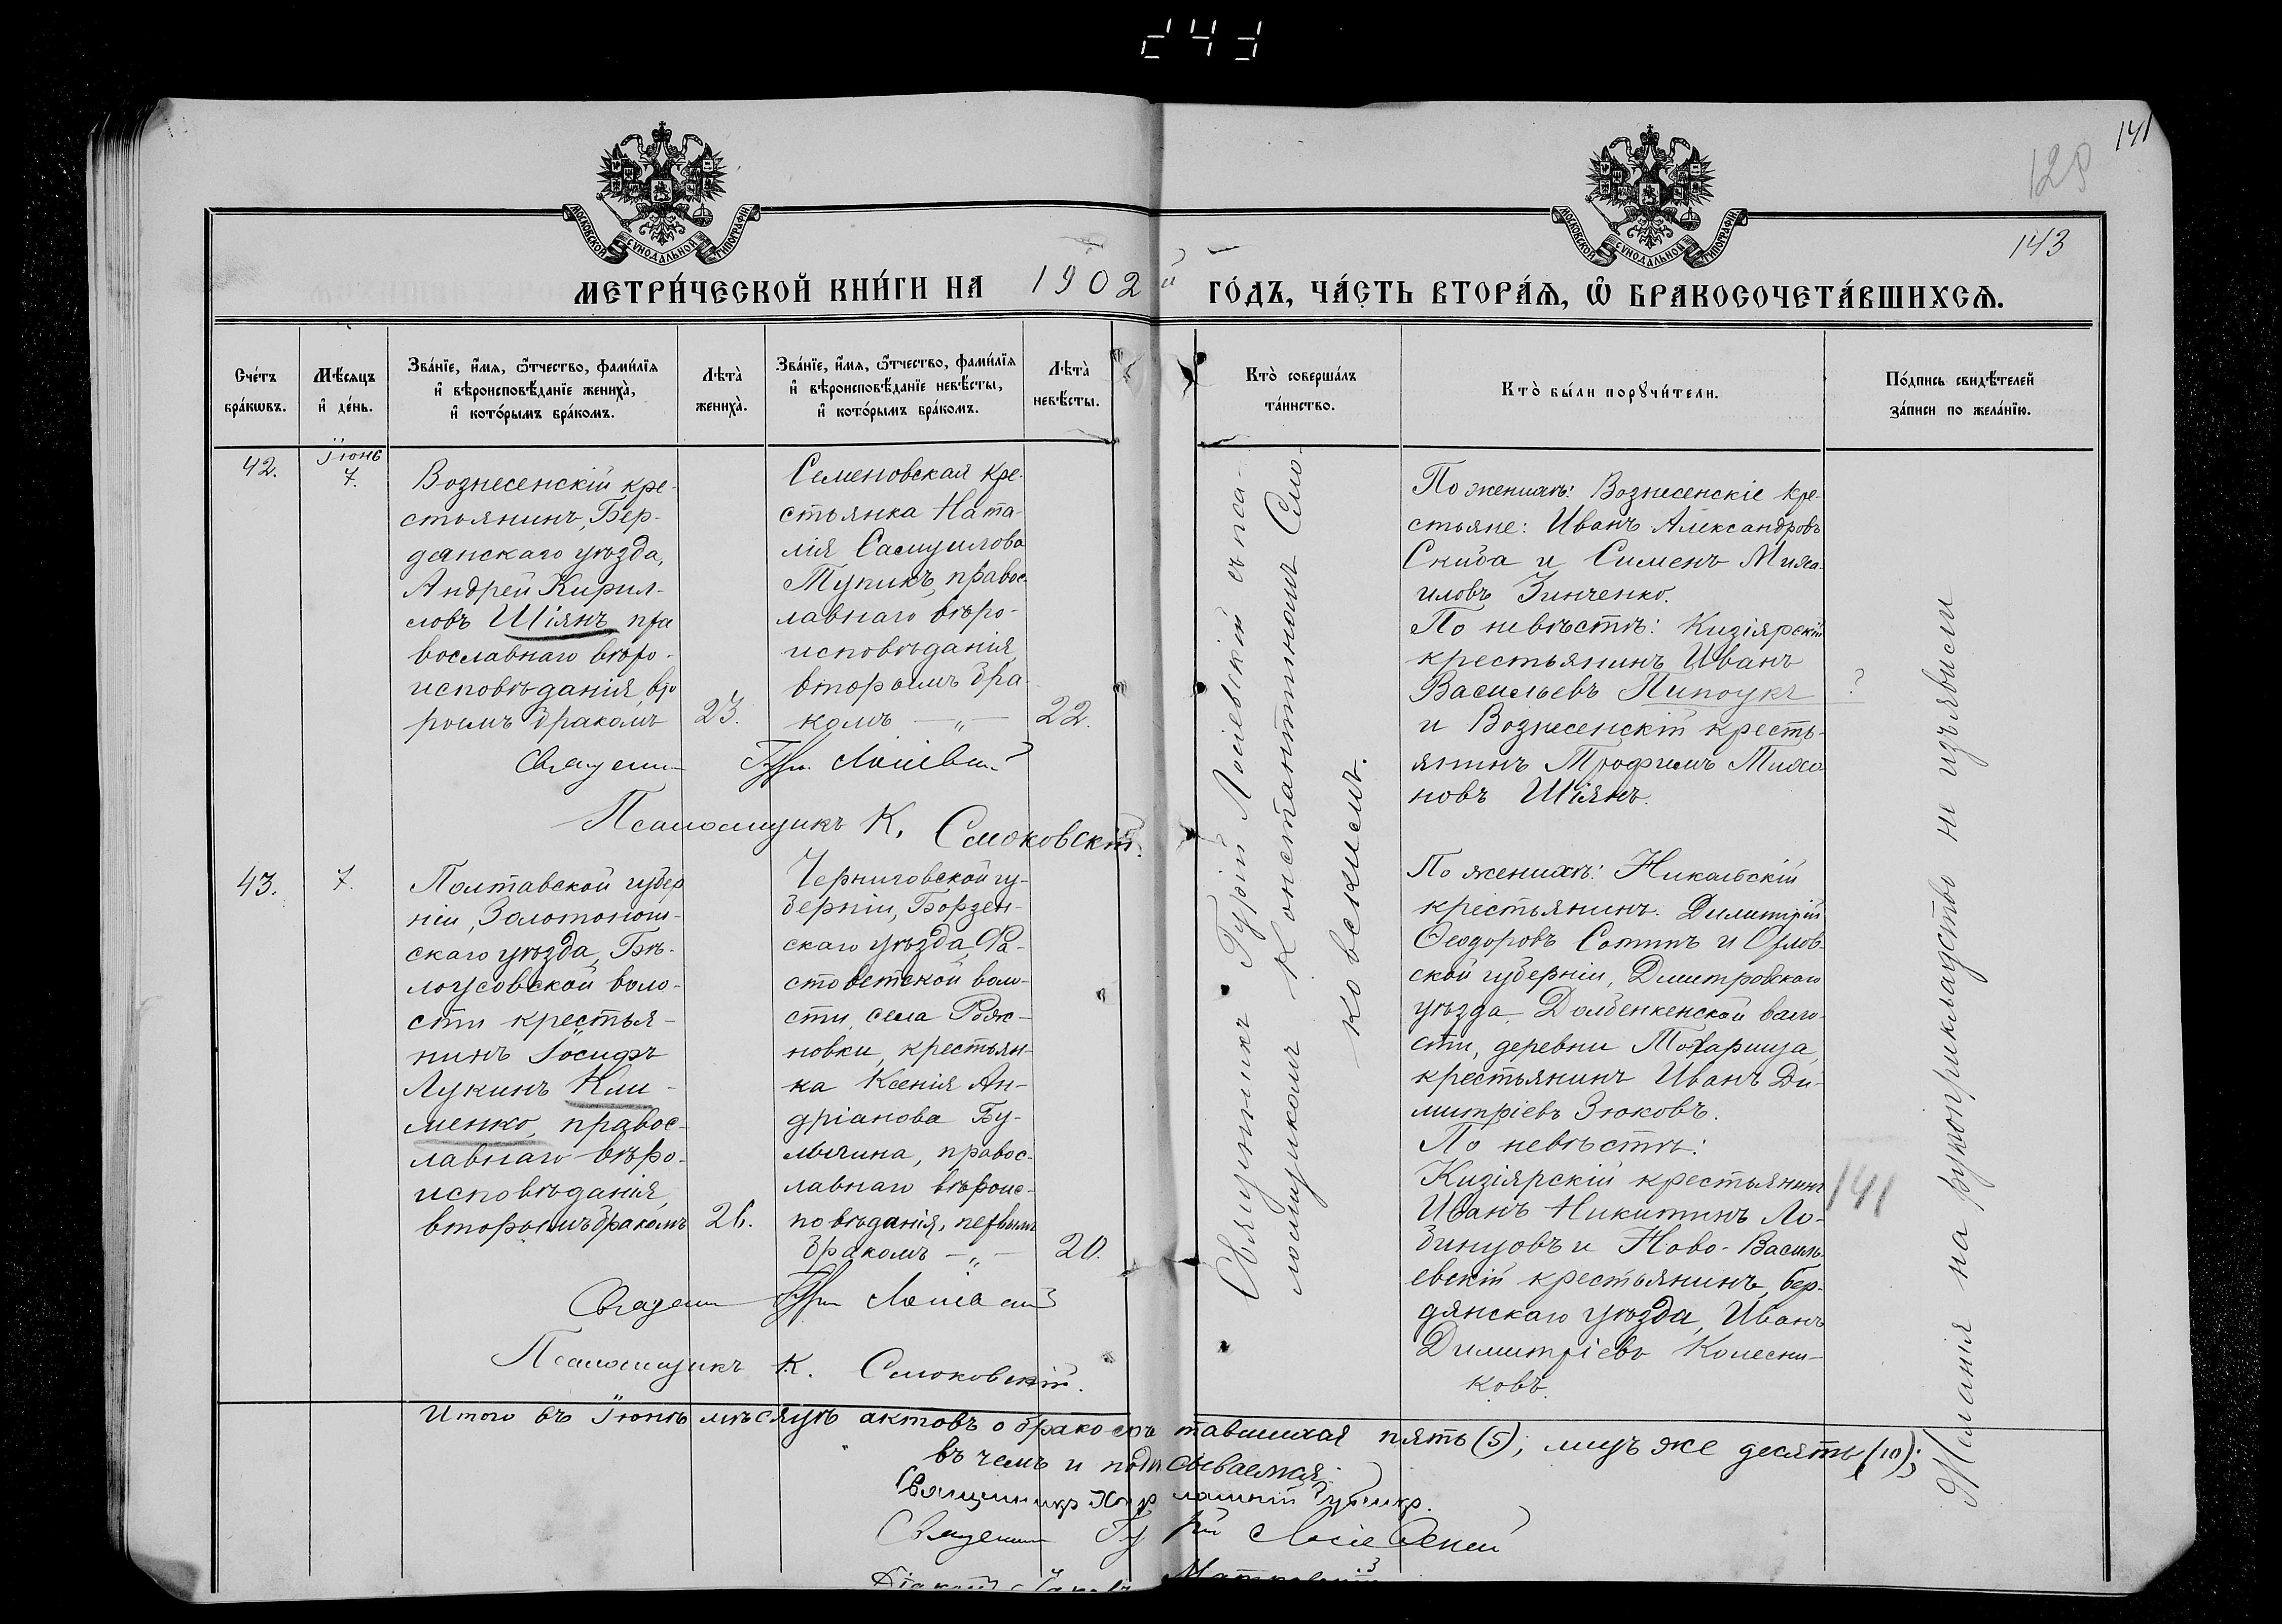 243
141
125
143
МОСКОВСКОЙ СѴНОДАЛЬНОЙ ТИПОГРАФІИ
МОСКОВСКОЙ СѴНОДАЛЬНОЙ ТИПОГРАФІИ
МЕТРИ́ЧЕСКОЙ КНИ́ГИ НА 1902й ГО́ДЪ, ЧА́СТЬ ВТОРА́Ѧ, Ѽ БРАКОСОЧЕТА́ВШИХСѦ.
Сче́тъ
бра́кѡвъ.
Мѣ́сяцъ
и҆ де́нь.
Зва́нїе, и҆́мя, ѻ҆́тчество, фами́лїя
и҆ вѣроисповѣ́данїе жениха̀,
и҆ кото́рымъ бра́комъ.
Лѣта̀
жениха̀.
Зва́нїе, и҆́мя, ѻ҆́тчество, фами́лїя
и҆ вѣроисповѣ́данїе невѣ́сты,
и҆ кото́рымъ бра́комъ.
Лѣта̀
невѣ́сты.
Кто̀ соверша́лъ
та́инство.
Кто̀ бы́ли порꙋчи́тели.
По́дпись свидѣ́телей
за́писи по жела́нїю.
42.
Іюнь
7.
Вознесенскій кре-
стьянинъ, Бер-
дянскаго уѣзда,
Андрей Кирил-
ловъ Шіянъ, пра
вославнаго вѣро-
исповѣданія, вто
рымъ бракомъ
23.
Семеновская кре-
стьянка Ната-
лія Самуилова
Тупикъ, правос-
лавнаго вѣро-
исповѣданія,
вторымъ бра
комъ — „ —
22.
Священникъ Гурій Лосіевскій
Псаломщикъ К. Смоковскій.
Священникъ Гурій Лосіевскій съ пса-
ломщикомъ Константиномъ Смо-
ковскимъ.
По женихѣ: Вознесенскіе кре-
стьяне: Иванъ Александровъ
Скиба и Сименъ Миха-
иловъ Зинченко.
По невѣстѣ: Кизіярскій
крестьянинъ Иванъ
Васильевъ Пипоукъ
?
и Вознесенскій кресть-
янинъ Трофимъ
новъ Шіянъ.
Желанія на рукоприкладство не изъявили
43.
7.
Полтавской губер
ніи, Золотонош-
скаго уѣзда, Бѣ-
лоусовской воло-
сти крестья-
нинъ Іосифъ
Лукинъ Кли-
менко, правос-
лавнаго вѣро-
исповѣданія,
вторымъ бракомъ
26.
Черниговской гу-
берніи, Борзен-
скаго уѣзда, Фа-
стоветской воло-
сти, села Рож-
новки, крестьян-
ка Ксенія Ан-
дріанова Бу-
, правос-
лавнаго вѣроис-
повѣданія, первымъ
бракомъ — „ —
20.
Священникъ Гурій Лосіевскій
Псаломщикъ К. Смоковскій.
По женихѣ: Никольскій
крестьянинъ: Димитрій
Ѳеодоровъ Сотинъ и Орлов-
ской губерніи, Дмитровскаго
уѣзда, Долбенкенской воло-
сти, деревни
крестьянинъ Иванъ Ди-
митріевъ Зюковъ.
По невѣстѣ:
Кизіярскій крестьянинъ
141
Иванъ Никитинъ Ло-
бинцовъ и Ново-Василь-
евскій крестьянинъ, бер-
дянскаго уѣзда, Иванъ
Димитріевъ Колесни-
ковъ.
Итого въ Іюнѣ мѣсяцѣ актовъ о бракосочетавшихся пять (5), лицъ же десять (10);
въ чемъ и подписываемся:
Священникъ
Священникъ Гурій Лосіевскій
Діаконъ